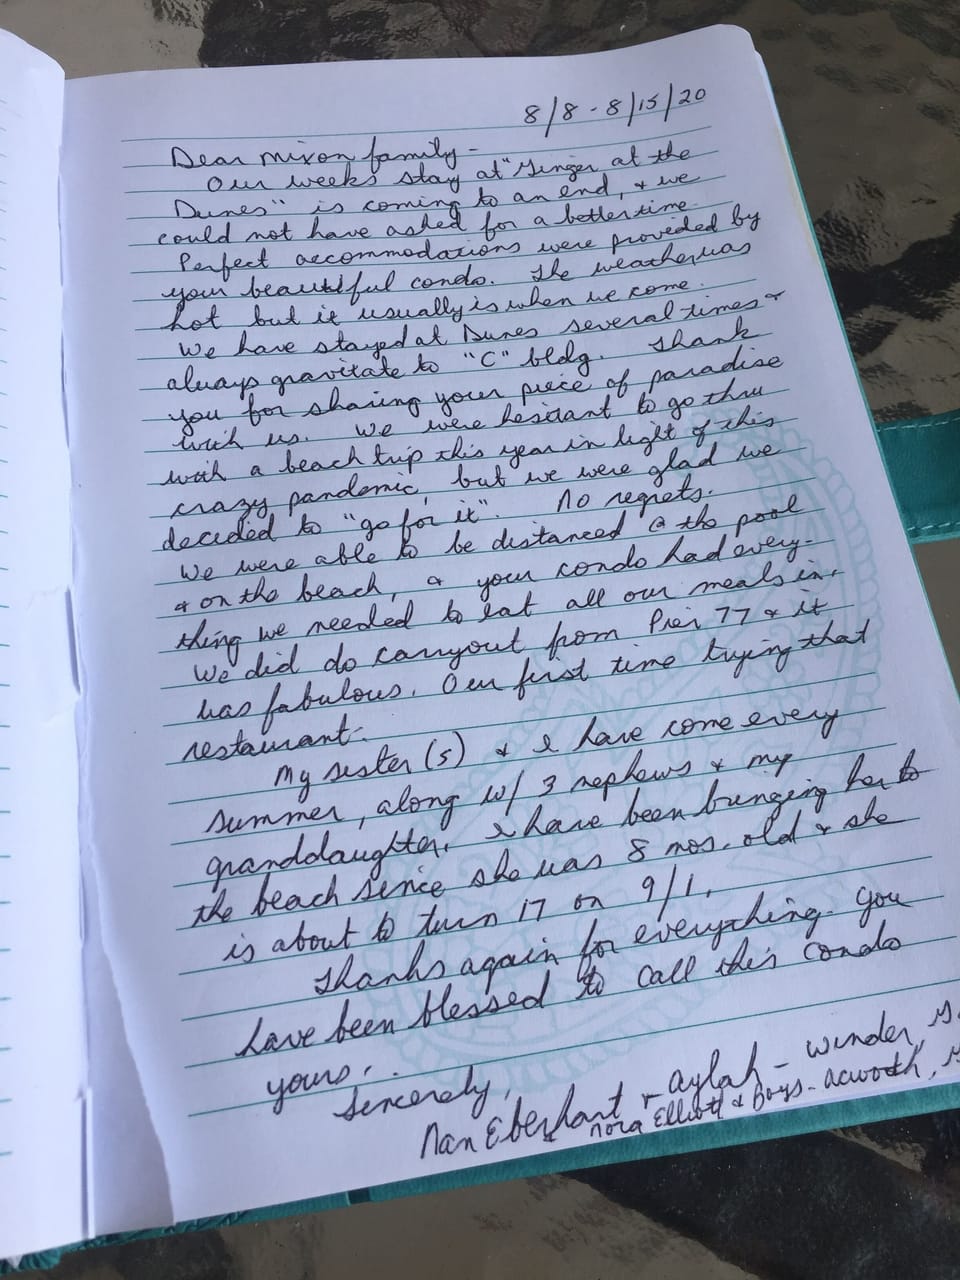 8/8 - 8/15/20
Dear Mixon family -
Our weeks stay at "Ginger at the
Dunes" is coming to an end, & we
could not have asked for a better time.
Perfect accommodations were provided by
your beautiful condo. The weather was
hot but it usually is when we come.
We have stayed at Dunes several times &
always gravitate to "C" bldg. Thank
you for sharing your piece of paradise
with us. We were hesitant to go thru
with a beach trip this year in light of this
crazy pandemic, but we were glad we
decided to "go for it". No regrets.
We were able to be distanced @ the pool
& on the beach, & your condo had every-
thing we needed to eat all our meals in.
We did do carryout from Pier 77 & it
was fabulous. Our first time trying that
restaurant.
My sister(s) & I have come every
summer, along w/ 3 nephews & my
granddaughter. I have been bringing her to
the beach since she was 8 mos. old & she
is about to turn 17 on 9/1.
Thanks again for everything. You
have been blessed to call this condo
yours.
Sincerely,
Nan Eberhart & Aylah - Winder,
& Nora Elliott & boys - Acworth,